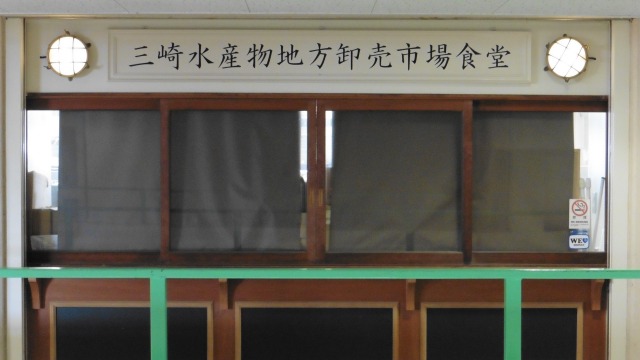 三崎水産物地方卸売市場食堂
WE